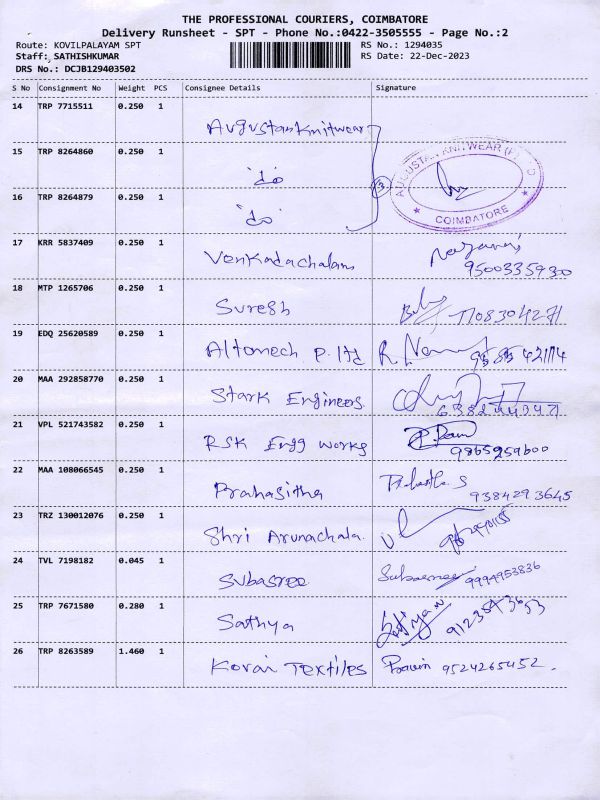 THE PROFESSIONAL COURIERS, COIMBATORE
Delivery Runsheet - SPT - Phone No.:0422-3505555 - Page No.:2
Route: KOVILPALAYAM SPT RS No.: 1294035
Staff: SATHISHKUMAR RS Date: 22-Dec-2023
DRS No.: DCJB129403502
S No Consignment No Weight PCS Consignee Details Signature
14 TRP 7715511 0.250 1
Augustan Knitwear
15 TRP 8264860 0.250 1
"do" 3 AUGUSTAN KNITWEAR COIMBATORE
16 TRP 8264879 0.250 1
"do"
17 KRR 5837409 0.250 1
Venkadachalam 9500335930
18 MTP 1265706 0.250 1
Suresh 7708304271
19 EDQ 25620589 0.250 1
Altomech P. ltd
20 MAA 292858770 0.250 1
Stark Engineers
21 VPL 521743582 0.250 1
RSK Engg works 9865259600
22 MAA 108066545 0.250 1
Prahasitha 9384293645
23 TRZ 130012076 0.250 1
Shri Arunachala
24 TVL 7198182 0.045 1
Subasree 9994953836
25 TRP 7671580 0.280 1
Sathya
26 TRP 8263589 1.460 1
Kovai Textiles Pravin 9524265452.